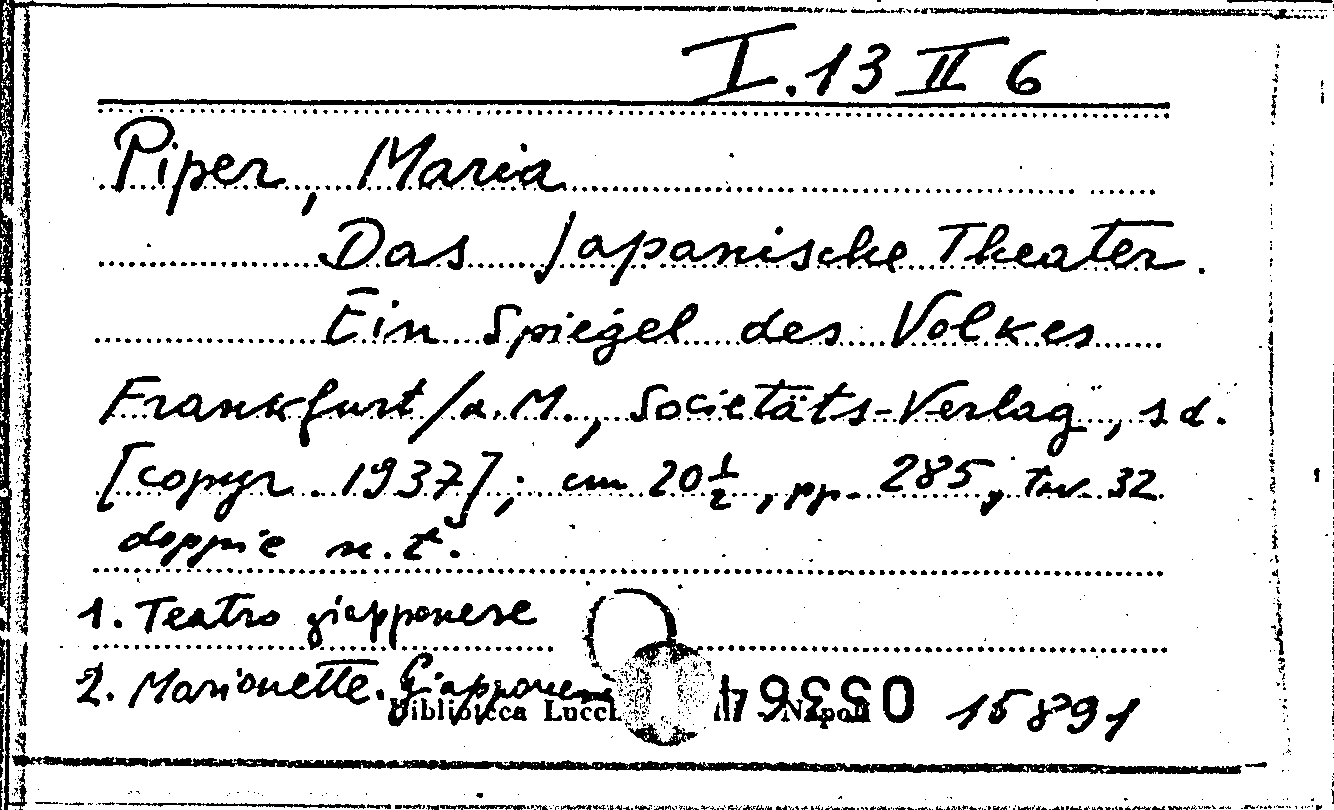 I.13 II 6
Piper, Maria
Das Japanische Theater.
Ein Spiegel des Volkes
Frankfurt /a.M., Societäts-Verlag, s d.
[copyr. 1937]; cm 20 1/2, pp. 285, tav. 32
doppie n.t.
1. Teatro giapponese
2. Marionette. Giapponesi
Biblioteca Napoli 15891